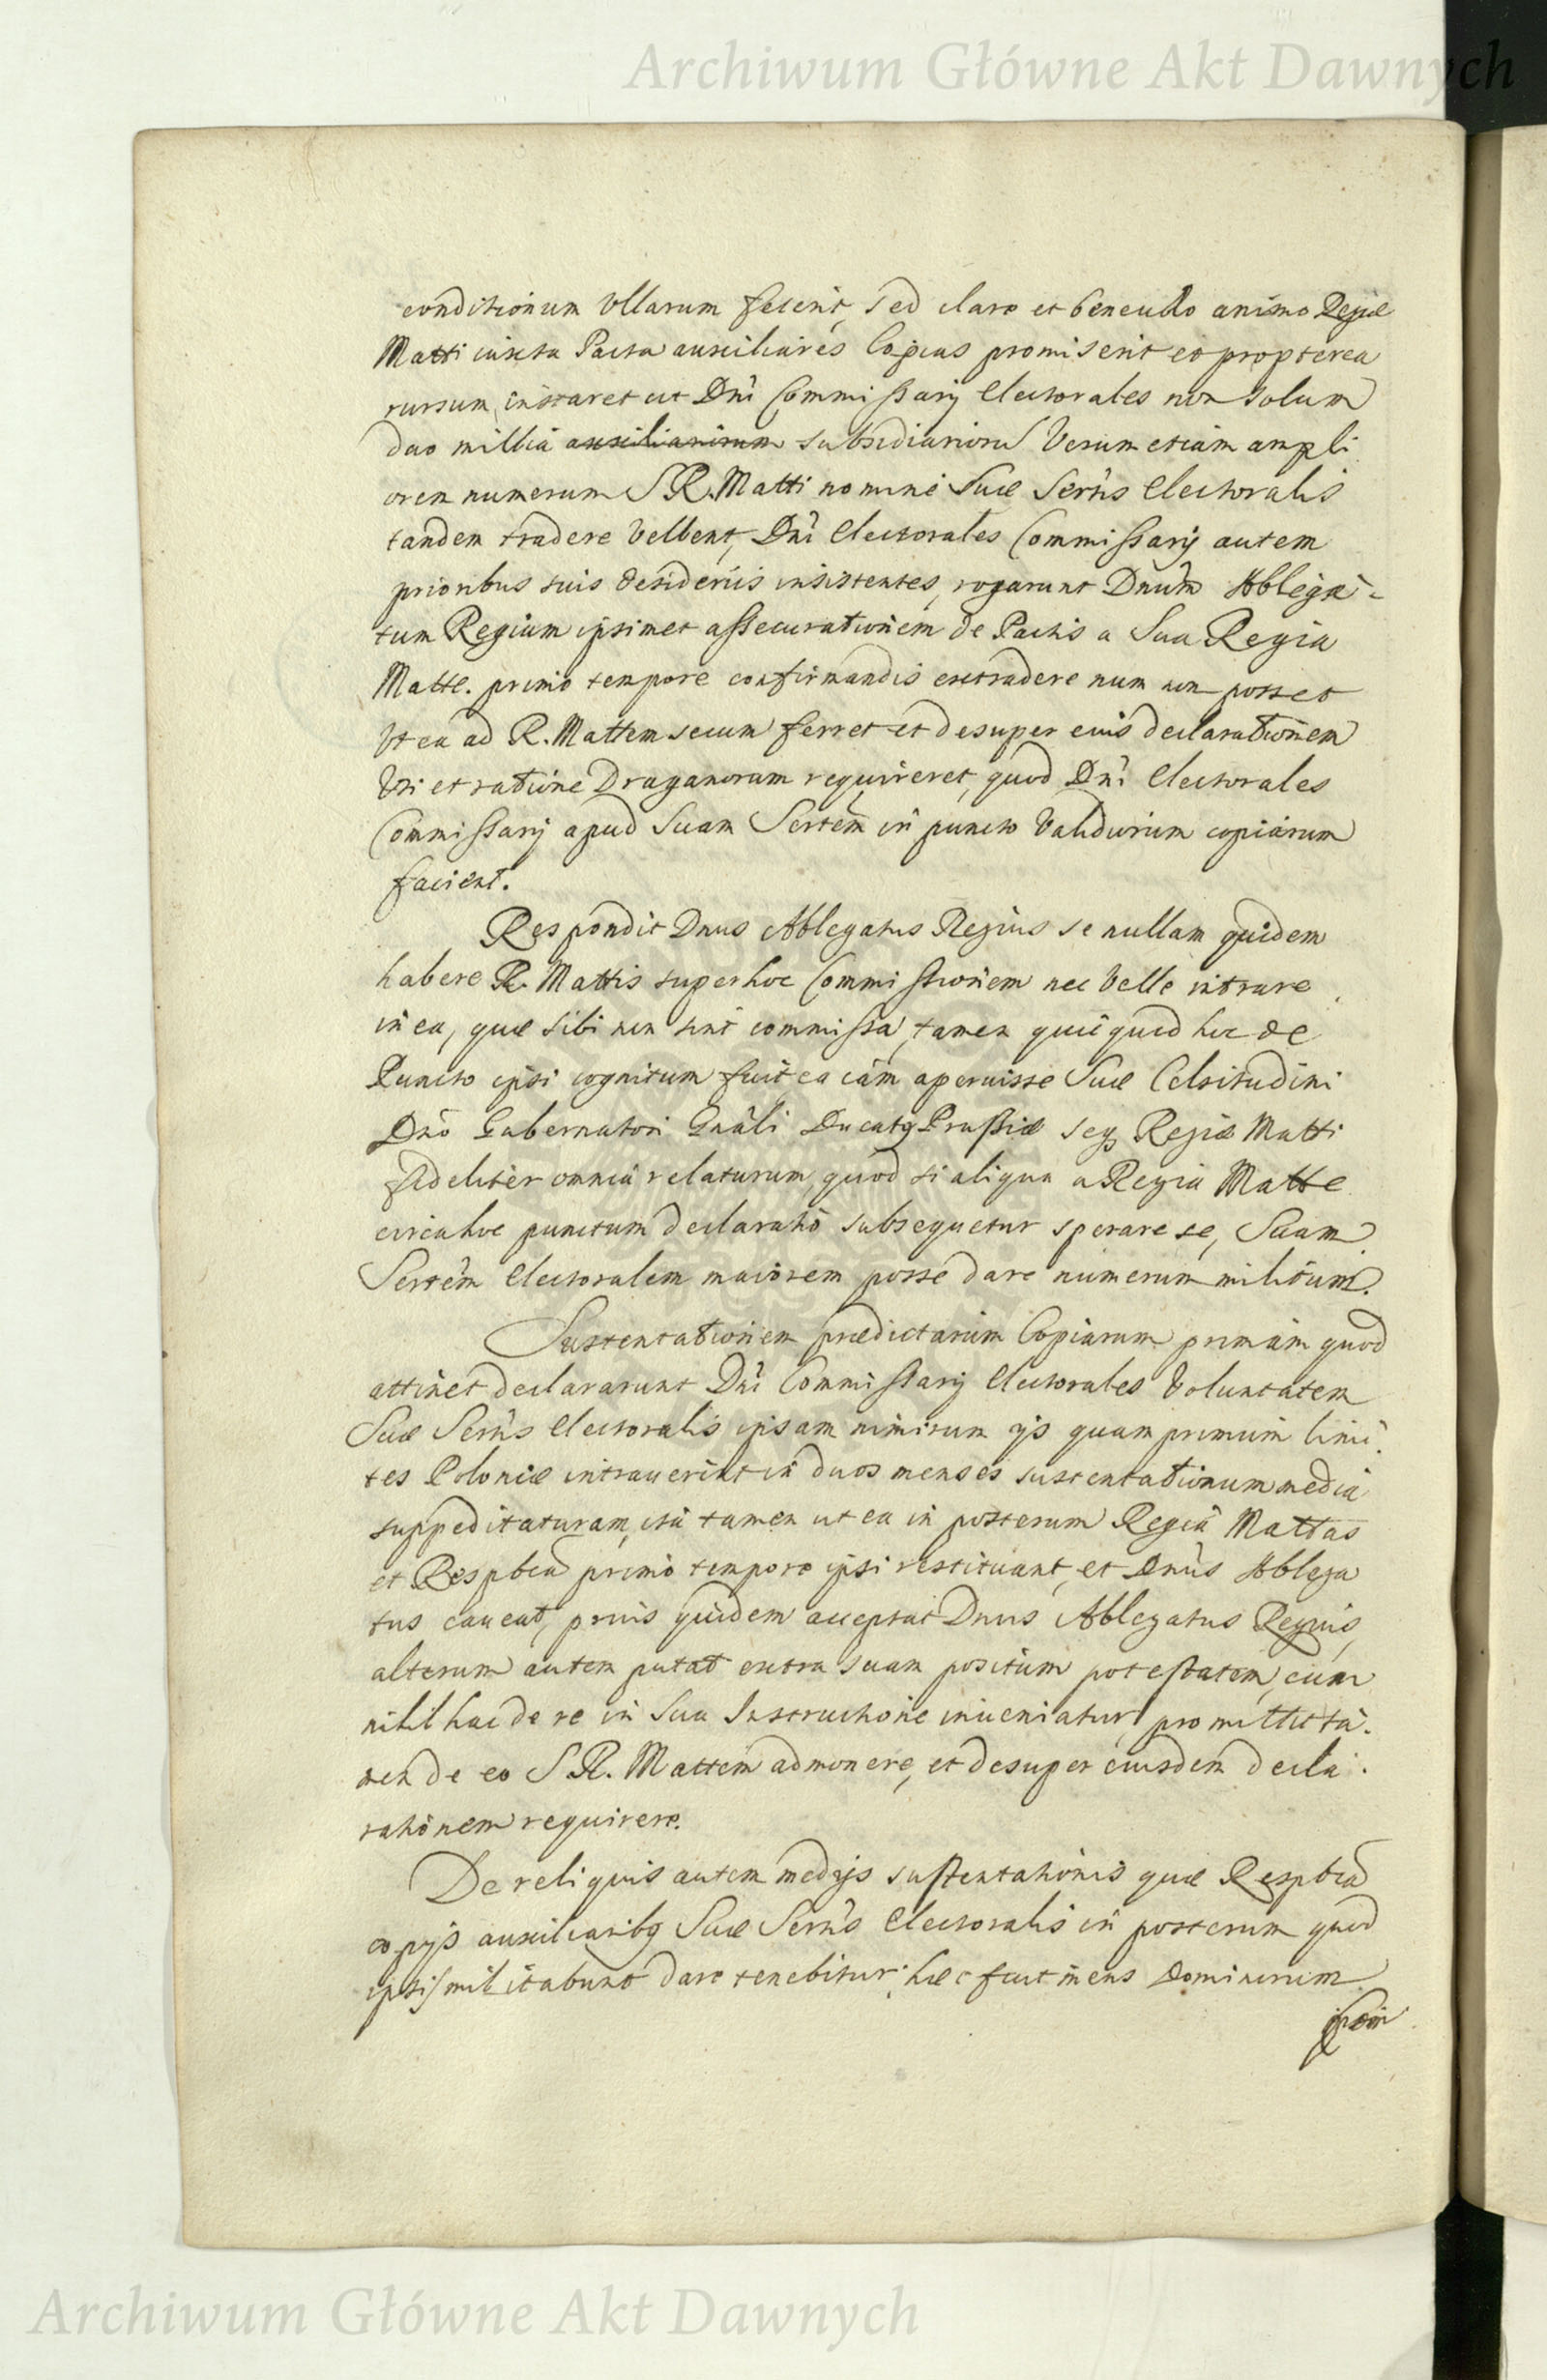 Archiwum Główne Akt Dawnych
conditionum Ullarum fecerit, sed claro et beneuolo animo Regiæ
Matti iuxta Pacta auxiliares Copias promiserit et propterea
rursum instaret ut Dni Commissarij Electorales non solum
duo millia auxiliariorum subsidiarioru Verum etiam ampli
orem numerum S.R. Matti nomine Suæ Sertis Electoralis
tandem tradere Vellent, Dni Electorales Commissarij autem
prioribus suis desideriis insistentes, rogarunt Dnum Ablega-
tum Regium ipsimet assecurationem de Pactis a Sua Regia
Matte. primo tempore confirmandis extradere num non posset
Vt ea ad R. Mattem secum ferret et desuper eius declarationem
Vti et ratione Draganorum requireret, quod Dni Electorales
Commissarij apud Suam Sertem in puncto Validiorum copiarum
facient.
Respondit Dnus Ablegatus Regius se nullam quidem
habere R. Mattis super hoc Commissionem nec Velle intrare
in ea, quæ sibi non sint commissa, tamen quicquid hic de
Puncto ipsi cognitum fuit ea iam aperuisse Suæ Celsitudini
Dno Gubernatori Gnali Ducatq Prussiæ seq Regiæ Matti
fideliter omnia relaturum, quod si aliqua a Regia Matte
circa hoc punctum declaratio subsequetur sperare se, Suam
Sertem Electoralem maiorem posse dare numerum militum.
Sustentationem prædictarum Copiarum primam quod
attinet declararunt Dni Commissarij Electorales Voluntatem
Suæ Sertis Electoralis ipsam nimirum ijs quam primum limi
tes Poloniæ intrauerint in duos menses sustentationum media
suppeditaturam, ita tamen ut ea in posterum Regia Mattas
et Respbca primo tempore ipsi restituant, et Dnus Ablega
tus caueat, prius quidem acceptat Dnus Ablegatus Regius,
alterum autem putat extra suam positum potestatem, cum
nihil hac de re in Sua Instructione inueniatur, promittit ta-
men de eo S.R. Mattem admonere, et desuper eiusdem decla-
rationem requirere.
De reliquis autem medijs sustentationis quæ Respbca
copijs auxiliaribq Suæ Sertis Electoralis in posterum quod
ipsi militabunt dare tenebitur, hæc fuit mens Dominorum
Archiwum Główne Akt Dawnych